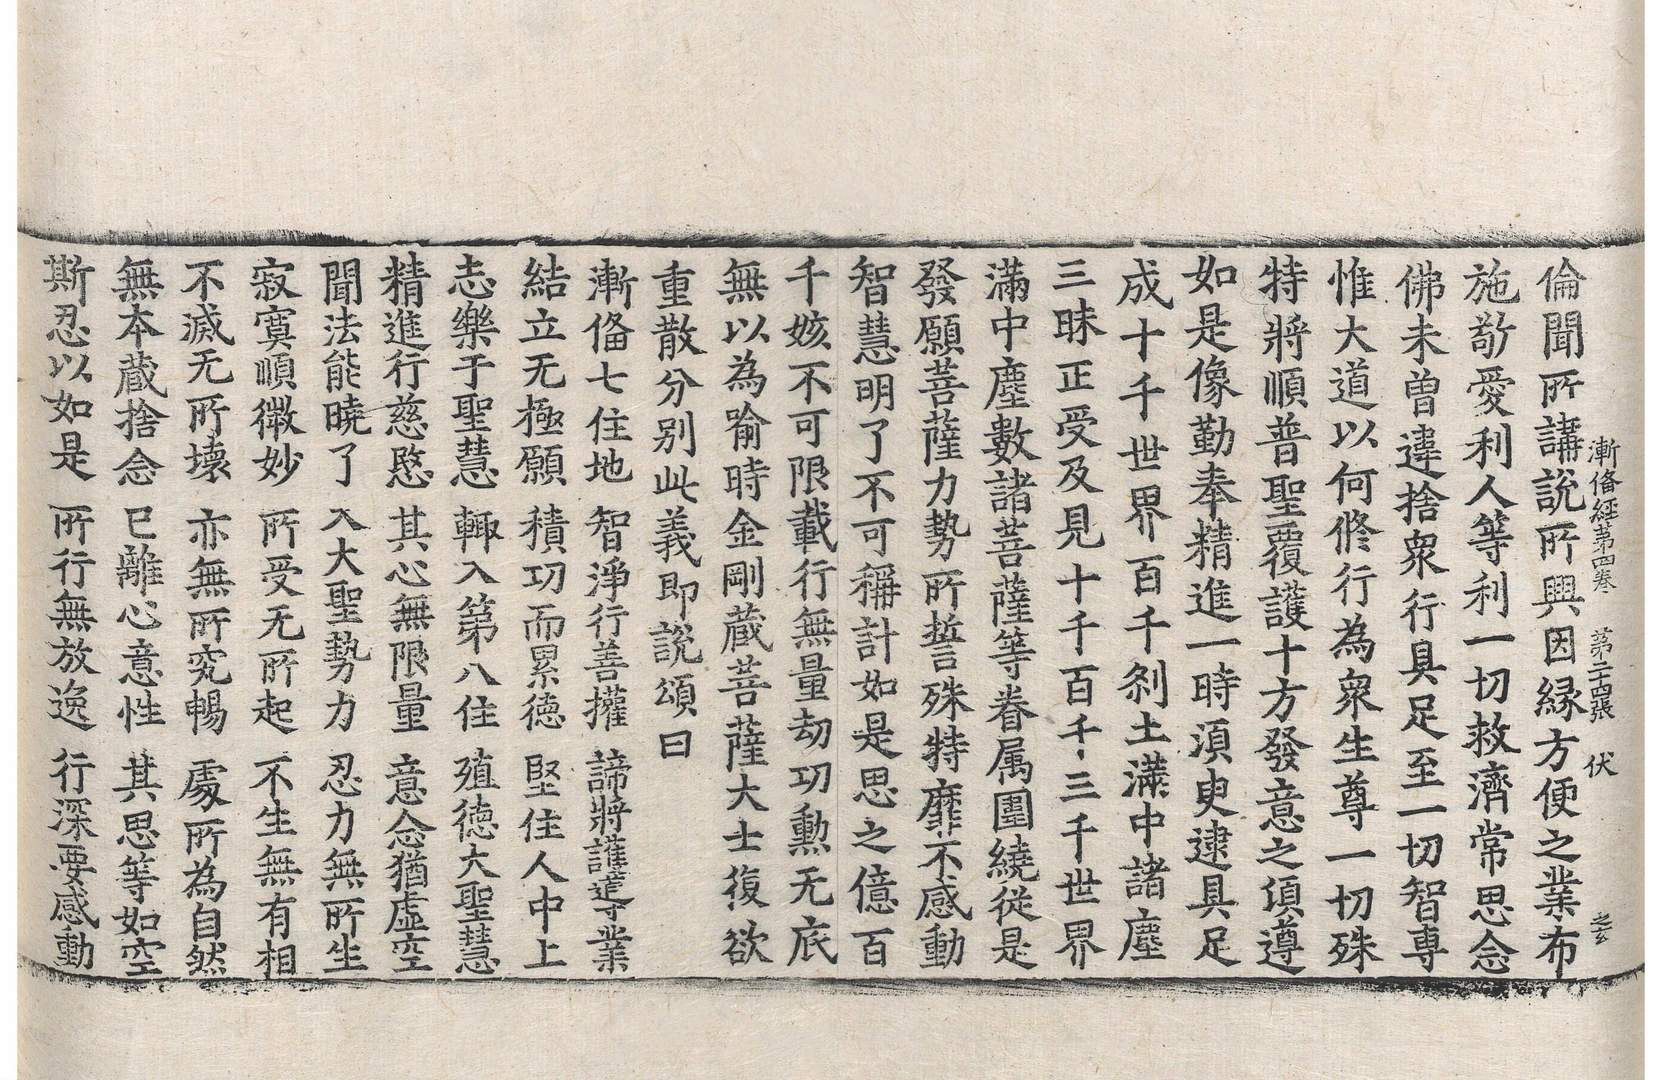 漸俻経第四巻　第二十四張　伏
倫聞所講說所興因縁方便之業布
施敬愛利人等利一切救濟常思念
佛未曽違捨衆行具足至一切智専
惟大道以何修行為衆生尊一切殊
特將順普聖覆護十方發意之頃遵
如是像勤奉精進一時湏臾逮具足
成十千世界百千刹土滿中諸塵
三昧正受及見十千百千三千世界
滿中塵數諸菩薩等眷属圍繞従是
發願菩薩力勢所誓殊特靡不感動
智慧明了不可稱計如是思之億百
千姟不可限載行無量劫功勲无底
無以為喻時金剛蔵菩薩大士復欲
重散分别此義即說頌曰
漸俻七住地　智淨行善權　諦將護道業
結立无極願　積功而累德　堅住人中上
志樂于聖慧　輙入第八住　殖德大聖慧
精進行慈愍　其心無限量　意念猶虚空
聞法能曉了　入大聖勢力　忍力無所生
寂寞順微妙　所受无所起　不生無有相
不滅无所壊　亦無所究暢　處所為自然
無本蔵捨念　已離心意性　其思等如空
斯忍以如是　所行無放逸　行深要感動